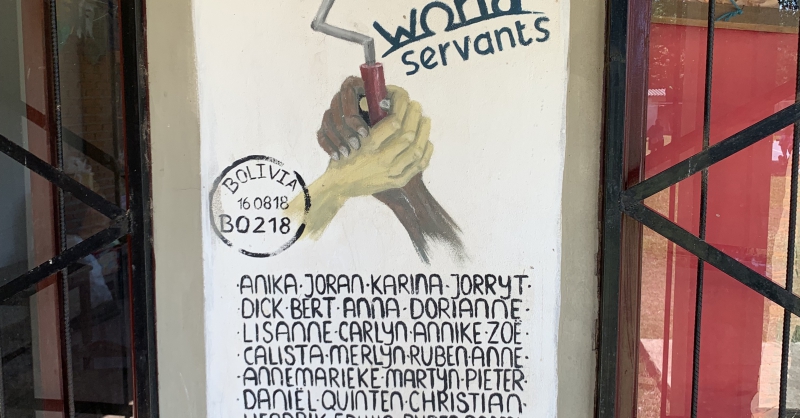 world
servants
BOLIVIA
16 08 18
BO218
·ANIKA·JORAN·KARINA·JORRYT·
DICK·BERT·ANNA·DORIANNE·
·LISANNE·CARLYN·ANNIKE·ZOË·
CALISTA·MERLYN·RUBEN·ANNE·
ANNEMARIEKE·MARTYN·PIETER·
DANIËL·QUINTEN·CHRISTIAN